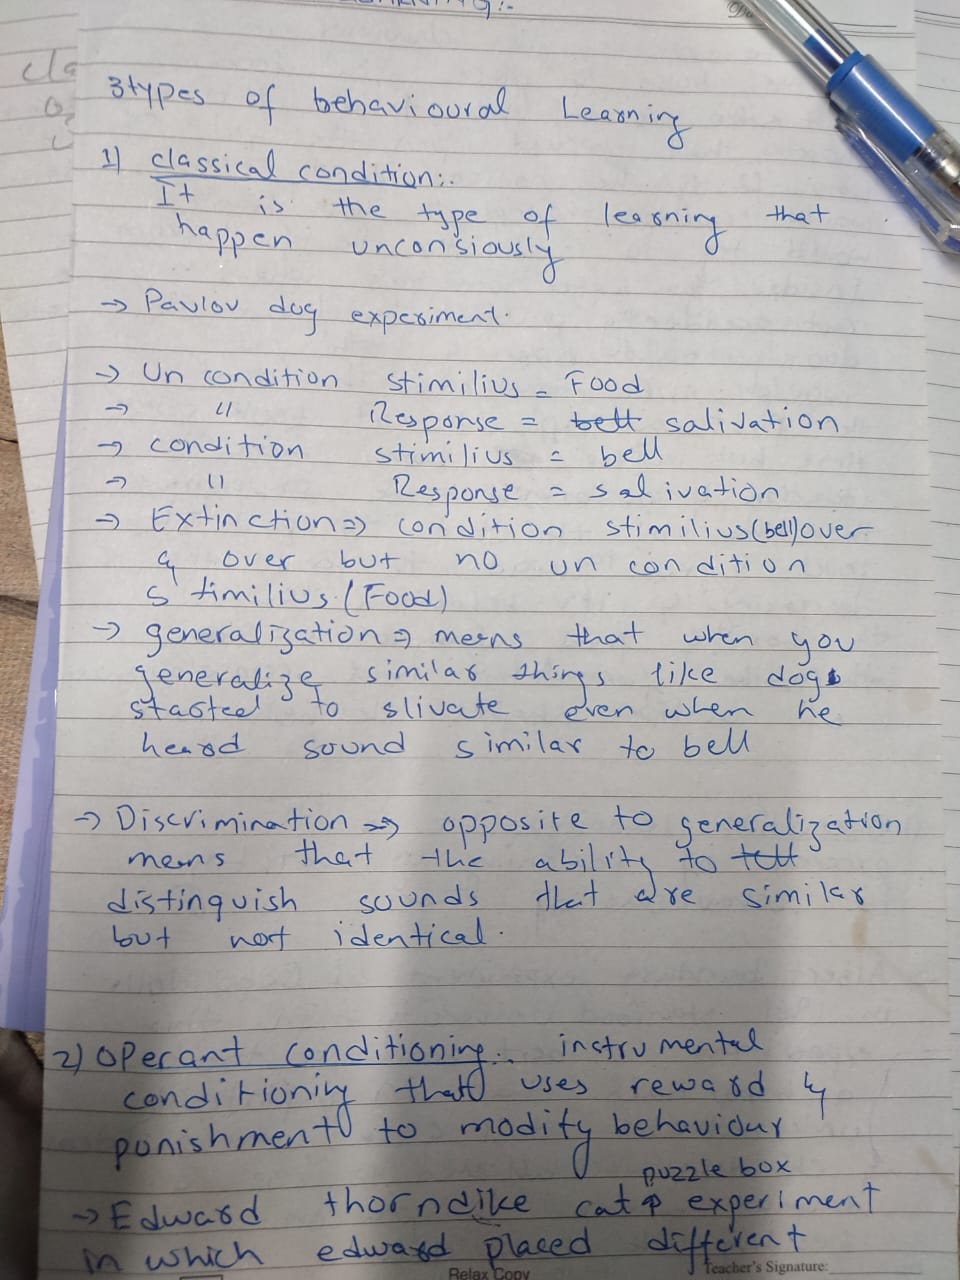 3types of behavioural Learning
1) classical condition:-
It is the type of learning that
happen unconsiously
→ Pavlov dog experiment.
→ Un condition stimilius = Food
→ " Response = bell salivation
→ condition stimilius = bell
→ " Response = salivation
→ Extinction ⇒ condition stimilius (bell) over
& over but no un condition
stimilius (Food)
→ generalization ⇒ means that when you
generalize similar things like dog
started to slivate even when he
heard sound similar to bell
→ Discrimination ⇒ opposite to generalization
means that the ability to tell
distinguish sounds that are similar
but not identical.
2) Operant conditioning:- instrumental
conditioning that uses reward &
punishment to modify behaviour
puzzle box
→ Edward thorndike cat experiment
in which edward placed different
Teacher's Signature:
Relax Copy